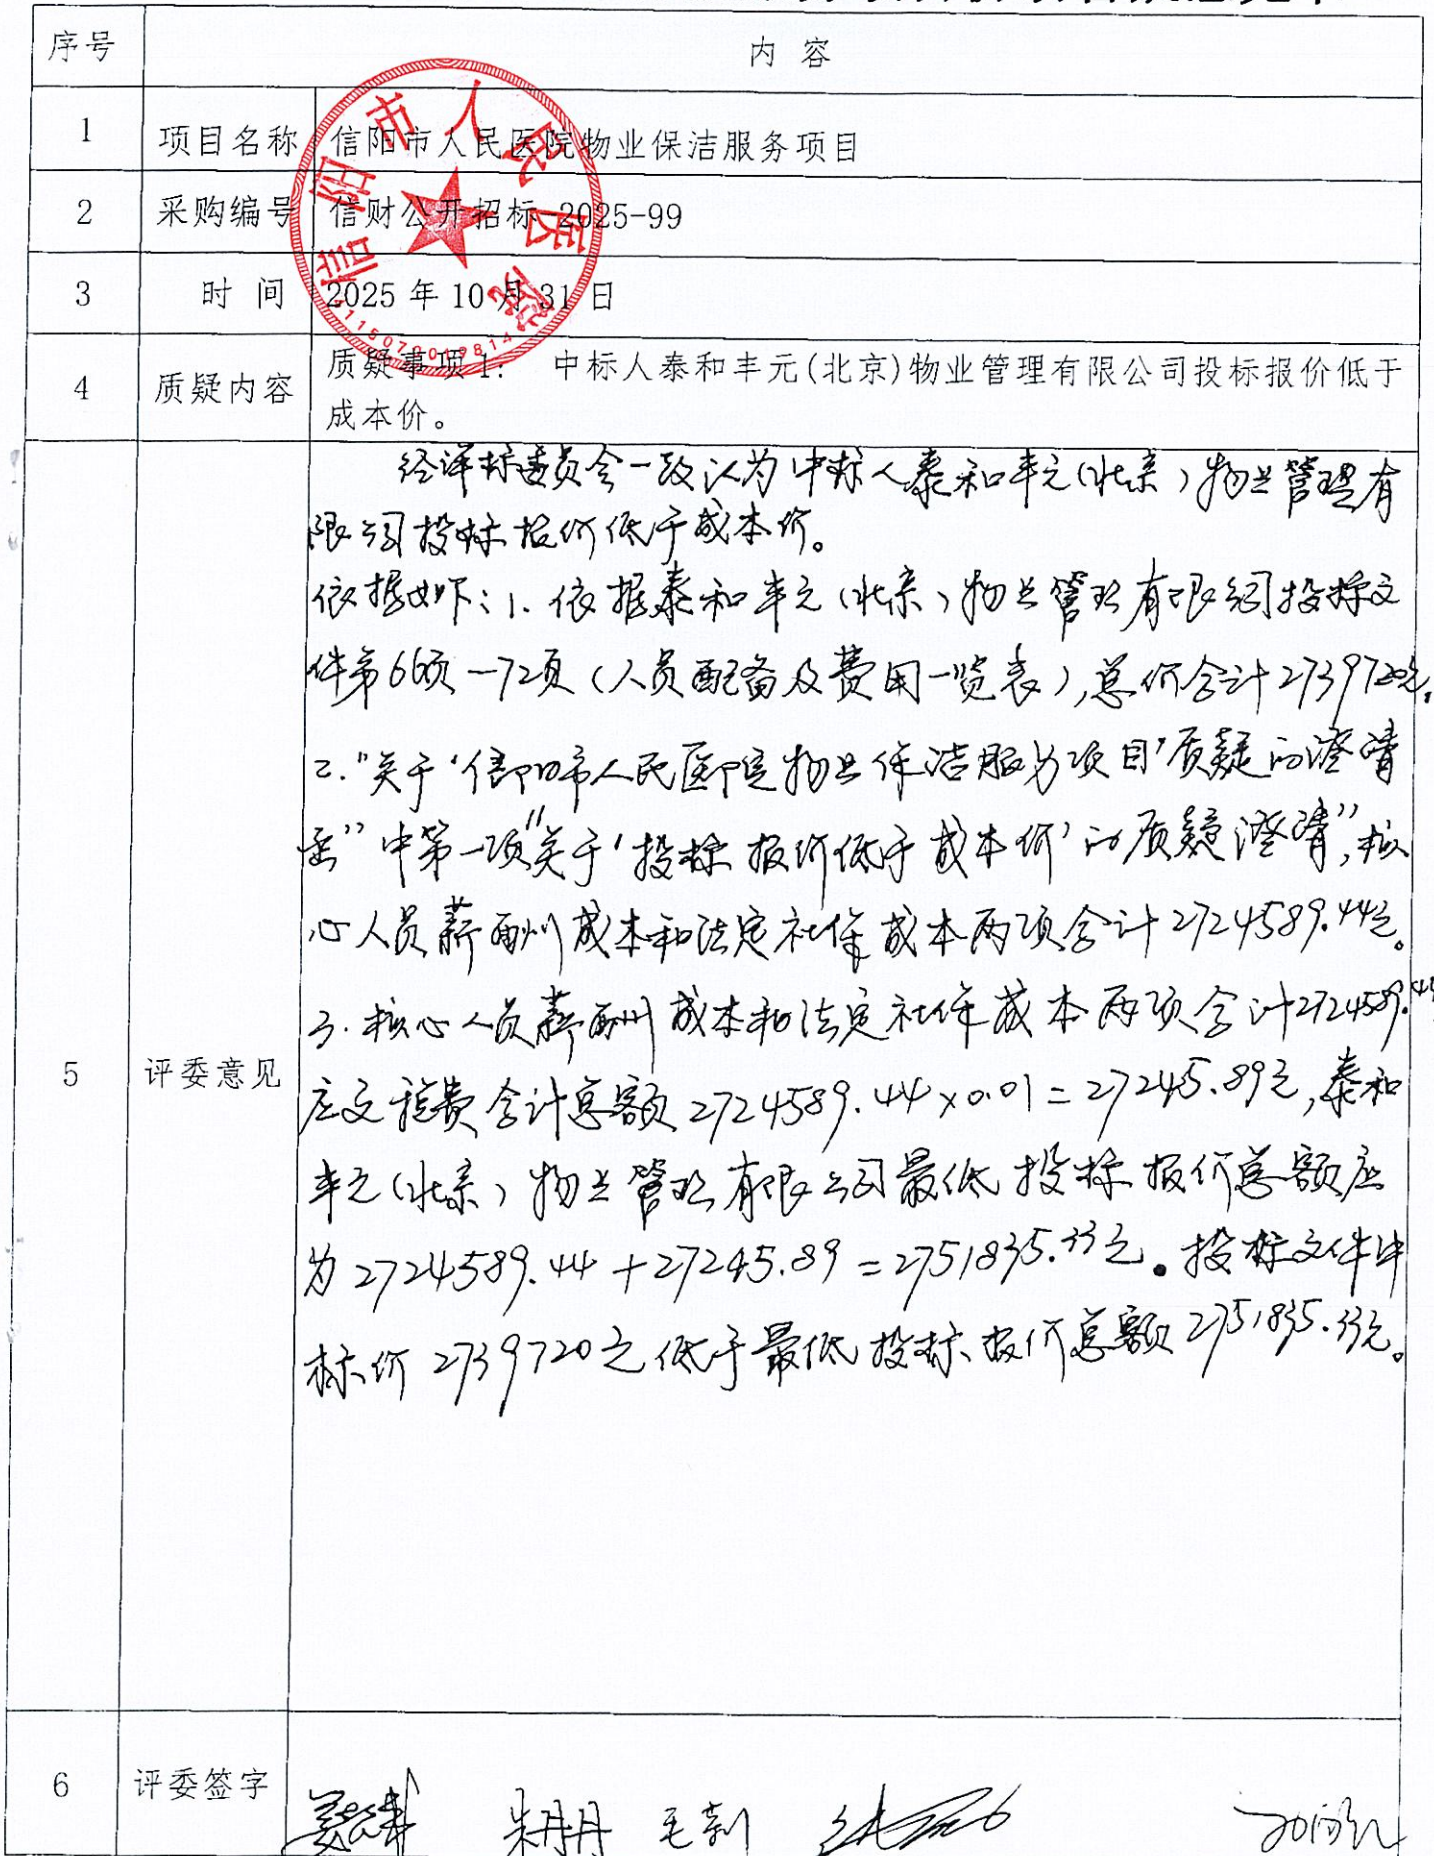 序号 内 容
1 项目名称 信阳市人民医院物业保洁服务项目
2 采购编号 信财公开招标-2025-99
3 时 间 2025 年 10 月 31 日
4 质疑内容 质疑事项 1: 中标人泰和丰元(北京)物业管理有限公司投标报价低于
成本价。
信阳市人民医院
经评标委员会一致认为中标人泰和丰元(北京)物业管理有
限公司投标报价低于成本价。
依据如下:1. 依据泰和丰元(北京)物业管理有限公司投标文
件第66页-72页(人员配备及费用一览表),总价合计2739720元。
2."关于'信阳市人民医院物业保洁服务项目'质疑的澄清
函"中第一项"关于'投标报价低于成本价'的质疑澄清",核
心人员薪酬成本和法定社保成本两项合计2724589.44元。
3.核心人员薪酬成本和法定社保成本两项合计2724589.44
5 评委意见
应交税费合计总额2724589.44×0.01=27245.89元,泰和
丰元(北京)物业管理有限公司最低投标报价总额应
为2724589.44+27245.89=2751835.33元。投标文件中
标价2739720元低于最低投标报价总额2751835.33元。
6 评委签字
朱丹丹 毛莉